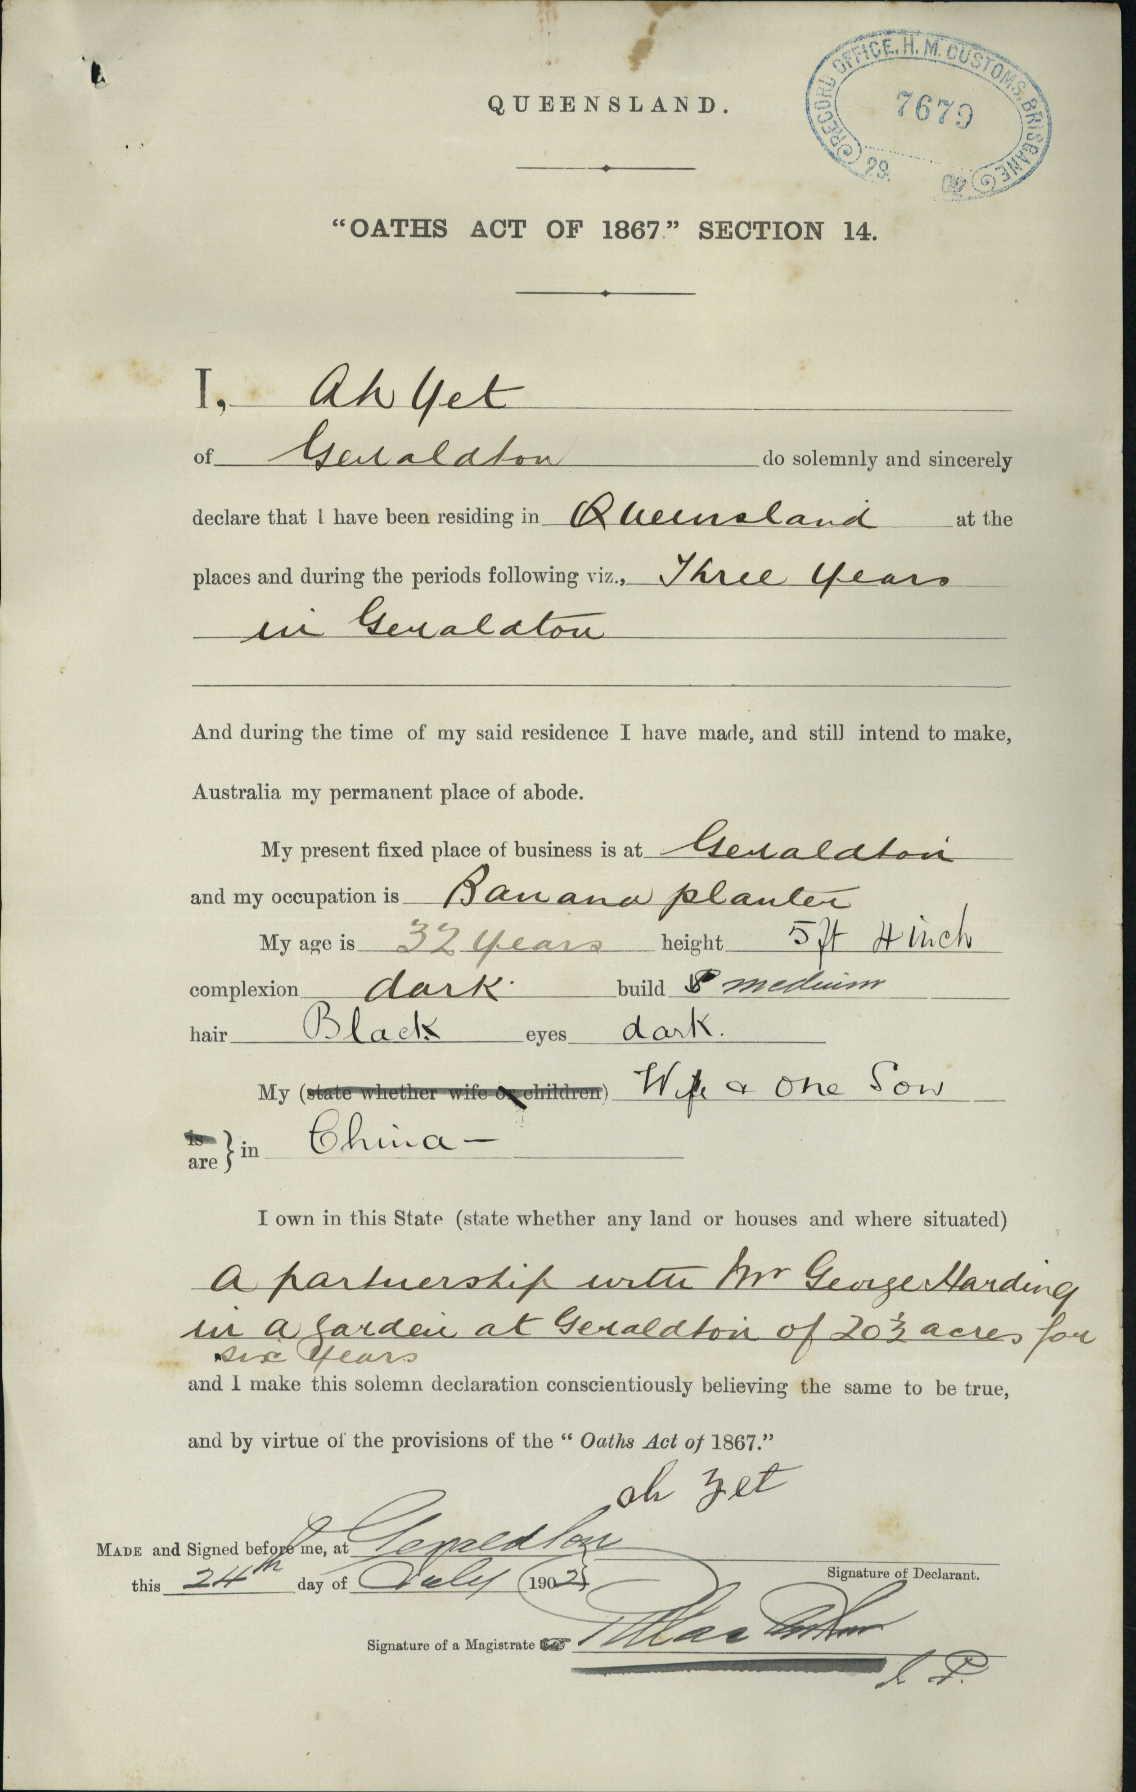 RECORD OFFICE, H. M. CUSTOMS, BRISBANE
7679
29. 02
QUEENSLAND.
"OATHS ACT OF 1867." SECTION 14.
I, Ah Yet
of Geraldton do solemnly and sincerely
declare that I have been residing in Queensland at the
places and during the periods following viz., Three Years
in Geraldton
And during the time of my said residence I have made, and still intend to make,
Australia my permanent place of abode.
My present fixed place of business is at Geraldton
and my occupation is Banana planter
My age is 32 years height 5 ft 4 inch
complexion dark. build medium
hair Black eyes dark.
My (state whether wife or children) Wife & One Son
is
are } in China —
I own in this State (state whether any land or houses and where situated)
A partnership with Mr George Harding
in a garden at Geraldton of 20½ acres for
six years
and I make this solemn declaration conscientiously believing the same to be true,
and by virtue of the provisions of the "Oaths Act of 1867."
ah Yet
MADE and Signed before me, at Geraldton
this 24th day of July 1902
Signature of Declarant.
Signature of a Magistrate
J. P.